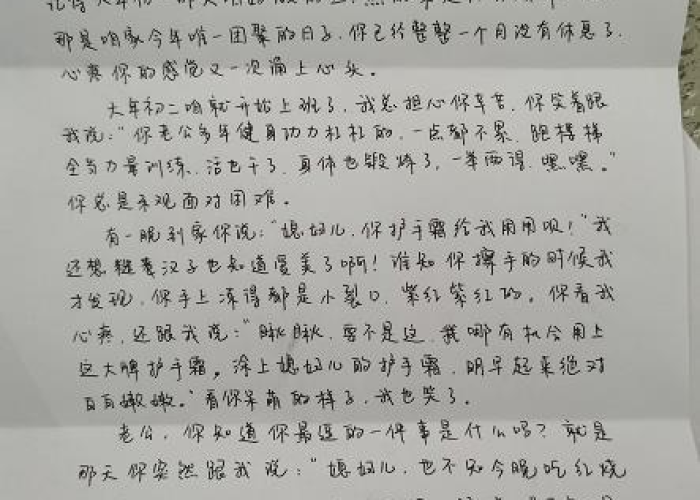 那是咱家今年唯一团聚的日子，你已经整整一个月没有休息了，
心疼你的感觉又一次涌上心头。
大年初二咱就开始上班了，我总担心你辛苦，你笑着跟
我说：“你老公多年健身功力杠杠的，一点都不累，跑楼梯
全当力量训练，活也干了，身体也锻炼了，一举两得，嘿嘿。”
你总是乐观面对困难。
有一晚到家你说：“媳妇儿，你护手霜给我用用呗！”我
还想糙老汉子也知道爱美了啊！谁知你擦手的时候我
才发现，你手上冻得都是小裂口，紫红紫红的。你看我
心疼，还跟我说：“瞅瞅，要不是这，我哪有机会用上
这大牌护手霜。涂上媳妇儿的护手霜，明早起来绝对
白白嫩嫩。”看你呆萌的样子，我也笑了。
老公，你知道你最逗的一件事是什么吗？就是
那天你突然跟我说：“媳妇儿，也不知今晚吃红烧